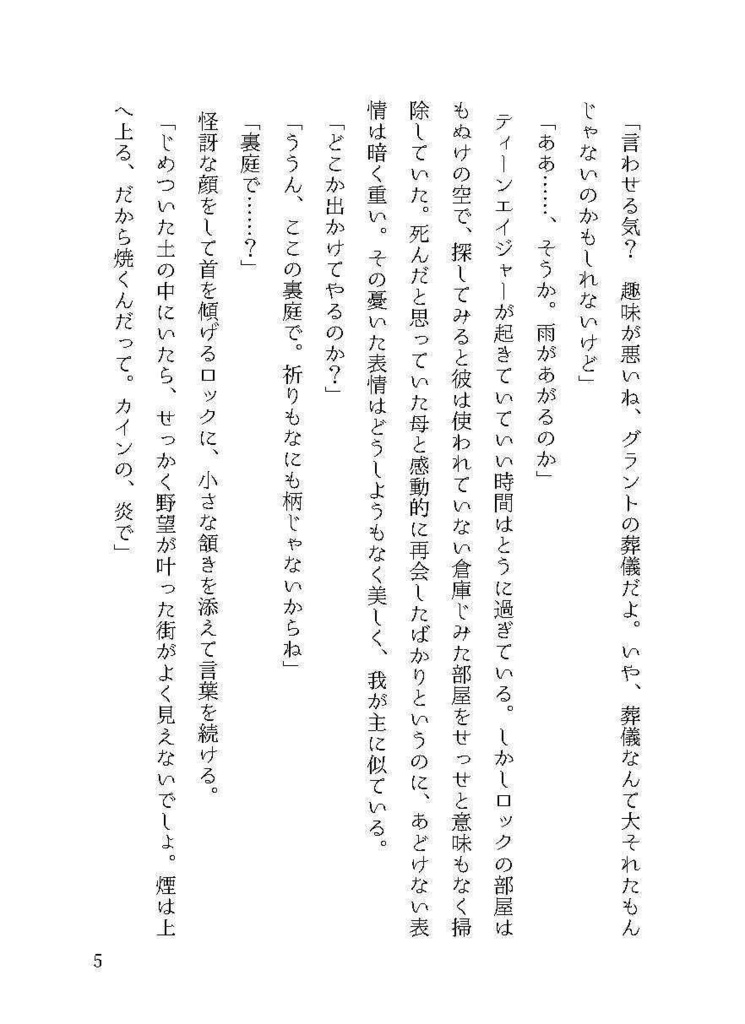 「言わせる気？　趣味が悪いね、グラントの葬儀だよ。いや、葬儀なんて大それたもん
じゃないのかもしれないけど」
「ああ……、そうか。雨があがるのか」
ティーンエイジャーが起きていていい時間はとうに過ぎている。しかしロックの部屋は
もぬけの空で、探してみると彼は使われていない倉庫じみた部屋をせっせと意味もなく掃
除していた。死んだと思っていた母と感動的に再会したばかりというのに、あどけない表
情は暗く重い。その憂いた表情はどうしようもなく美しく、我が主に似ている。
「どこか出かけてやるのか？」
「ううん、ここの裏庭で。祈りもなにも柄じゃないからね」
「裏庭で……？」
怪訝な顔をして首を傾げるロックに、小さな頷きを添えて言葉を続ける。
「じめついた土の中にいたら、せっかく野望が叶った街がよく見えないでしょ。煙は上
へ上る、だから焼くんだって。カインの、炎で」
5